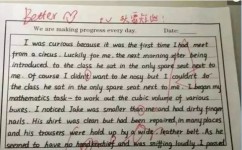 Better
We are making progress every day. Date:
I was curious because it was the first time I had meet
from a circus. Luckily for me, the next morning after being
introduced to the class he sat in the only spare seat next to
me. Of course I didn't want to be nosy but I couldn't
the class he sat in the only spare seat next to me. I began my
mathematics task to work out the cubic volume of various
boxes. I noticed Jake was smaller than me and had dirty finger
nails. His shirt was clean but had been repaired in many places
and his trousers were hold up by a wide leather belt. As he
seemed to have no handkerchief and was sniffing loudly I passed